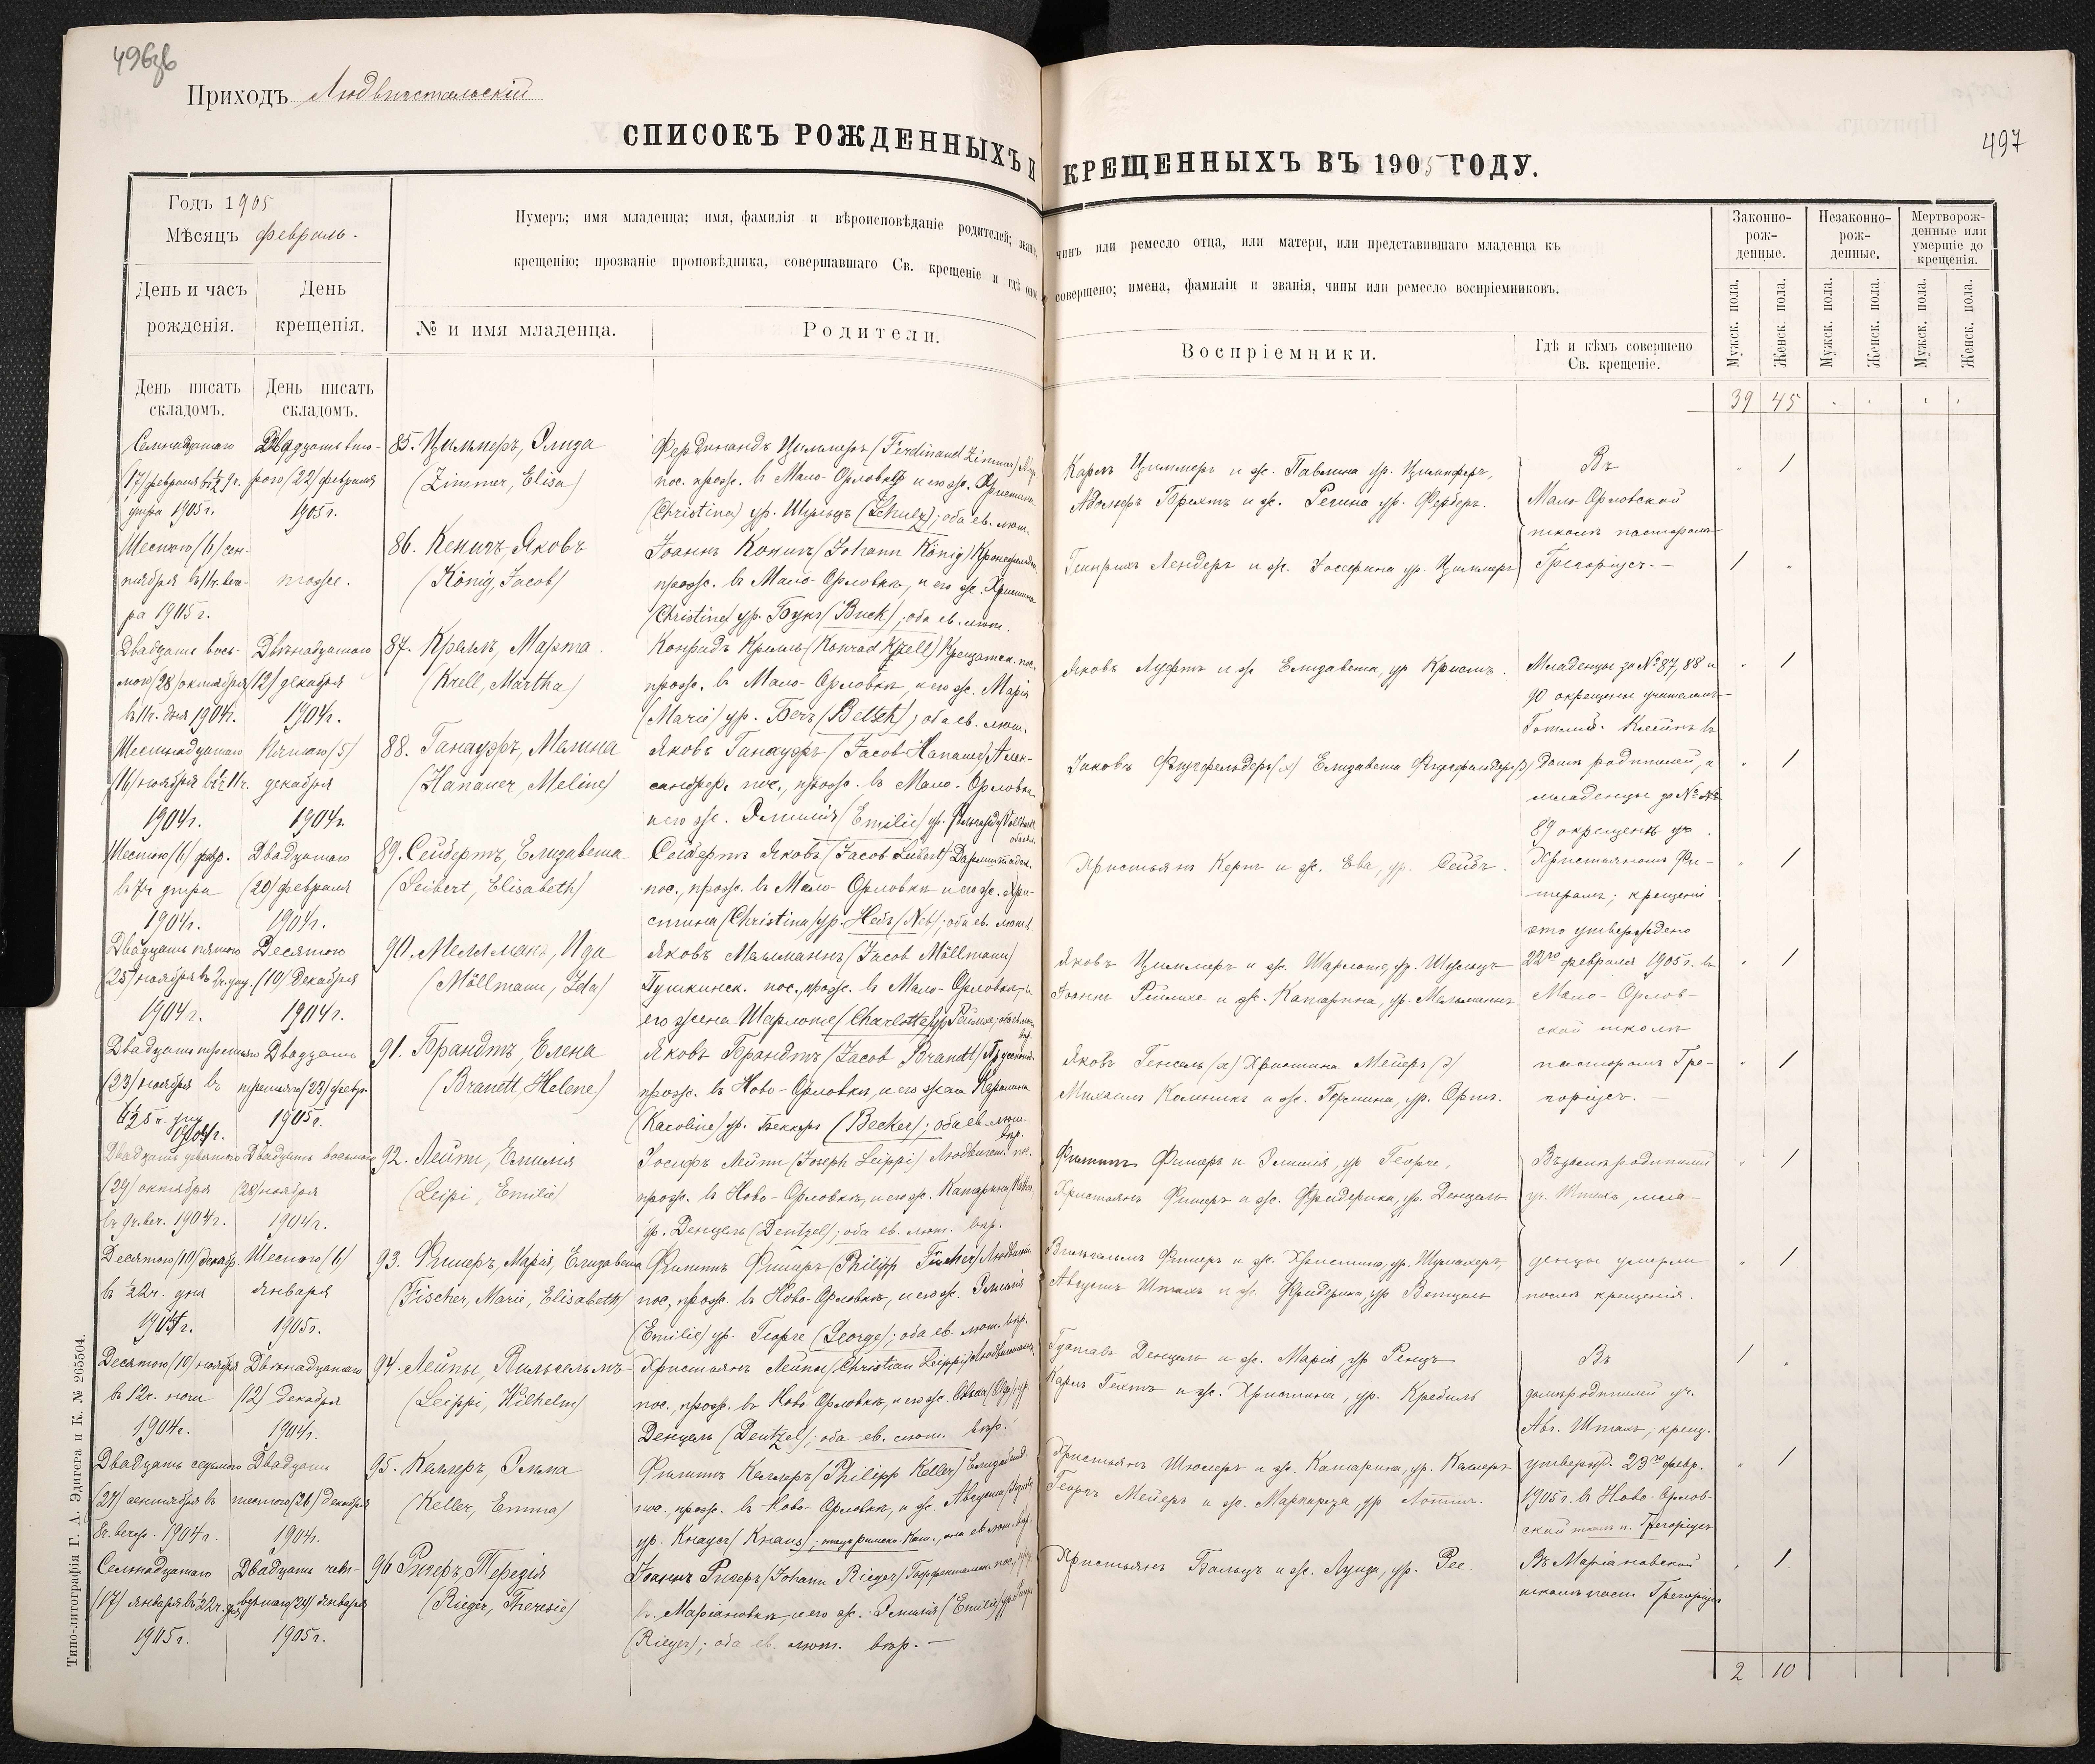 496об
Приходъ Людвигстальскій
СПИСОКЪ РОЖДЕННЫХЪ И КРЕЩЕННЫХЪ ВЪ 1905 ГОДУ.
497
Годъ 1905
Мѣсяцъ февраль.
Нумеръ; имя младенца; имя, фамилія и вѣроисповѣданіе родителей; званіе, чинъ или ремесло отца, или матери, или представившаго младенца къ
крещенію; прозваніе проповѣдника, совершавшаго Св. крещеніе и гдѣ оное совершено; имена, фамиліи и званія, чины или ремесло воспріемниковъ.
День и часъ рожденія.
День крещенія.
№ и имя младенца.
Родители.
Воспріемники.
Гдѣ и кѣмъ совершено Св. крещеніе.
Законно-рож-денные.
Незаконно-рож-денные.
Мертворож-денные или умершіе до крещенія.
Мужск. пола.
Женск. пола.
Мужск. пола.
Женск. пола.
Мужск. пола.
Женск. пола.
День писать складомъ.
День писать складомъ.
39 45
Семнадцатаго
17/ февраля
утра 1905 г.
Двадцать вто-
рого (22) февраля
1905 г.
85. Циммеръ, Элиза
(Zimmer, Elisa)
Фердинандъ Циммеръ (Ferdinand Zimmer)
пос. прож. въ Мало-Орловкѣ и его ж. Христина
(Christina) ур. Шульцъ (Schulz); оба ев. лют.
Карлъ Циммеръ и ж. Павлина ур.
и ж. Регина ур. Ферберъ.
Въ
Мало-Орловской
школѣ пасторомъ
1
Шестого (6) сен-
тября въ 11 ч. вече-
ра 1905 г.
тоже.
86. Кенигъ, Яковъ
(König, Jacob)
Іоаннъ Кенигъ (Johann König)
прож. въ Мало-Орловкѣ, и его ж. Христина
(Christine) ур. Букъ (Buck); оба ев. лют.
Генрихъ Лендеръ и ж. Жозефина ур. Циммеръ
Грегоріусъ. —
1
Двадцать вось-
мого (28) октября
въ 11 ч. дня 1904 г.
Двѣнадцатого
(12) декабря
1904 г.
87. Крелль, Марта.
(Krell, Martha)
Конрадъ Крелль (Konrad Krell) Крещатск. пос.
прож. въ Мало-Орловкѣ, и его ж. Марія
(Marie) ур. Бечъ (Betsch); оба ев. лют.
Яковъ Луфтъ и ж. Елизавета, ур. Крисмъ.
Младенцы за № 87, 88 и
90 окрещены учителемъ
Клейнъ въ
1
Шестнадцатаго
(16) ноября
1904 г.
Пятого (5)
декабря
1904 г.
88. Ганауэръ, Мелина
(Hanauer, Meline)
Яковъ Ганауэръ (Jacob Hanauer) Алек-
сандерф. пос., прож. въ Мало-Орловкѣ
и его ж. Эмилія (Emilie) ур.
Яковъ Елизавета
домѣ родителей, а
младенцы за №
89 окрещенъ уч.
1
Шестого (6) февр.
въ 7 ч. утра
1904 г.
Двадцатаго
(20) февраля
1904 г.
89. Сейбертъ, Елизавета
(Seibert, Elisabeth)
Сейбертъ Яковъ (Jacob Seibert)
пос., прож. въ Мало-Орловкѣ и его ж. Хри-
стина (Christina) ур. Небъ (Neb); оба ев. лют.
Христьянъ Кернъ и ж. Ева, ур. Сейбъ.
Христьяномъ Фи-
шеромъ; крещеніе
это утверждено
1
Двадцать пятого
(25) ноября
1904 г.
Десятого
(10) Декабря
1904 г.
90. Меллманъ, Ида
(Möllmann, Ida)
Яковъ Меллманнъ (Jacob Möllmann)
Пушкинск. пос., прож. въ Мало-Орловкѣ, и
его жена Шарлоте (Charlotte)
Яковъ Циммеръ и ж. Шарлоте, ур. Шульцъ
и ж. Катарина, ур. Мельманнъ
22го февраля 1905 г. въ
Мало-Орлов-
ской школѣ
1
Двадцать третьяго
(23) ноября въ
1904 г.
Двадцать
третьяго (23) февр.
1905 г.
91. Брандтъ, Елена
(Brandt, Helene)
Яковъ Брандтъ (Jacob Brandt)
прож. въ Ново-Орловкѣ и его жена Каролина
(Karoline) ур. Беккеръ (Becker); оба ев. лют. вѣр.
Яковъ Генсель (х) Христина Мейеръ (д)
и ж. Гермина, ур. Ортъ.
пасторомъ Гре-
горіусъ. —
1
Двадцать девятого
(29) октября
въ 9 ч. веч. 1904 г.
Двадцать восьмого
(28) ноября
1904 г.
92. Лейпи, Эмилія
(Leipi, Emilie)
Іосифъ Лейпи (Joseph Leippi) Людвигст. пос.
прож. въ Ново-Орловкѣ, и его ж. Катарина
ур. Денцель (Dentzel); оба ев. лют. вѣр.
Филиппъ Фишеръ и Эмилія, ур. Георге,
Христьянъ Фишеръ и ж. Фридерика, ур. Денцель.
Въ домѣ родителей
уч. Шталь, мла-
1
Десятого (10) декабр.
въ ½ 2 ч. дня
1904 г.
Шестого (6)
января
1905 г.
93. Фишеръ, Марія, Елизавета
(Fischer, Marie, Elisabeth)
Филиппъ Фишеръ (Philipp Fischer) Людвигст.
пос., прож. въ Ново-Орловкѣ, и его ж. Эмилія
(Emilie) ур. Георге (George); оба ев. лют. вѣр.
Вильгельмъ Фишеръ и ж. Христина, ур. Шумахеръ,
Августъ Шталь и ж. Фридерика, ур. Ветцель
денцы умерли
послѣ крещенія.
1
Десятого (10) ноября
въ 12 ч. ночи
1904 г.
Двѣнадцатаго
(12) декабря
1904 г.
94. Лейпы, Вильгельмъ
(Leippi, Wilhelm)
Христьянъ Лейпы (Christian Leippi) Людвигст.
пос., прож. въ Ново-Орловкѣ, и его ж. Ольга (Olga), ур.
Денцель (Dentzel); оба ев. лют. вѣр.
Густавъ Денцель и ж. Марія, ур. Ренцъ
Карлъ Гехтъ и ж. Христина, ур. Кребиль
Въ
домѣ родителей уч.
Авг. Шталь; крещ.
1
Двадцать седьмого
(27) сентября въ
8 ч. вечера 1904 г.
Двадцать
шестого (26) декабря
1904 г.
95. Келлеръ, Эмма
(Keller, Emma)
Филиппъ Келлеръ (Philipp Keller)
пос., прож. въ Ново-Орловкѣ, и ж. Августа
ур. Кнаусъ (Knaus); отецъ римско-кат., она ев. лют. вѣр.
Христьянъ и ж. Катарина, ур. Келлеръ
Георгъ Мейеръ и ж. Маргарета, ур.
утвержд. 23го февр.
1905 г. въ Ново-Орлов-
ской школѣ п. Грегоріусъ
1
Семнадцатаго
(17) января
1905 г.
Двадцать чет-
вертаго (24) января
1905 г.
96 Ригеръ, Терезія
(Rieger, Theresie)
Іоаннъ Ригеръ (Johann Rieger)
въ Маріановкѣ, и его ж. Эмилія (Emilie)
(Rieger); оба ев. лют. вѣр. —
Христьянъ Бальцъ и ж. Луиза, ур. Рее.
Въ Маріановской
школѣ паст. Грегоріусъ
1
2 10
Типо-литографія Г. А. Эдигера и К. № 265504.